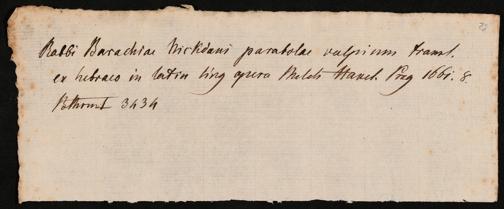 Rabbi Barachiae Nickdani parabolae vulpium transl.
ex hebraeo in latin ling opera Melch Hanel. Prag 1661. 8.
3434